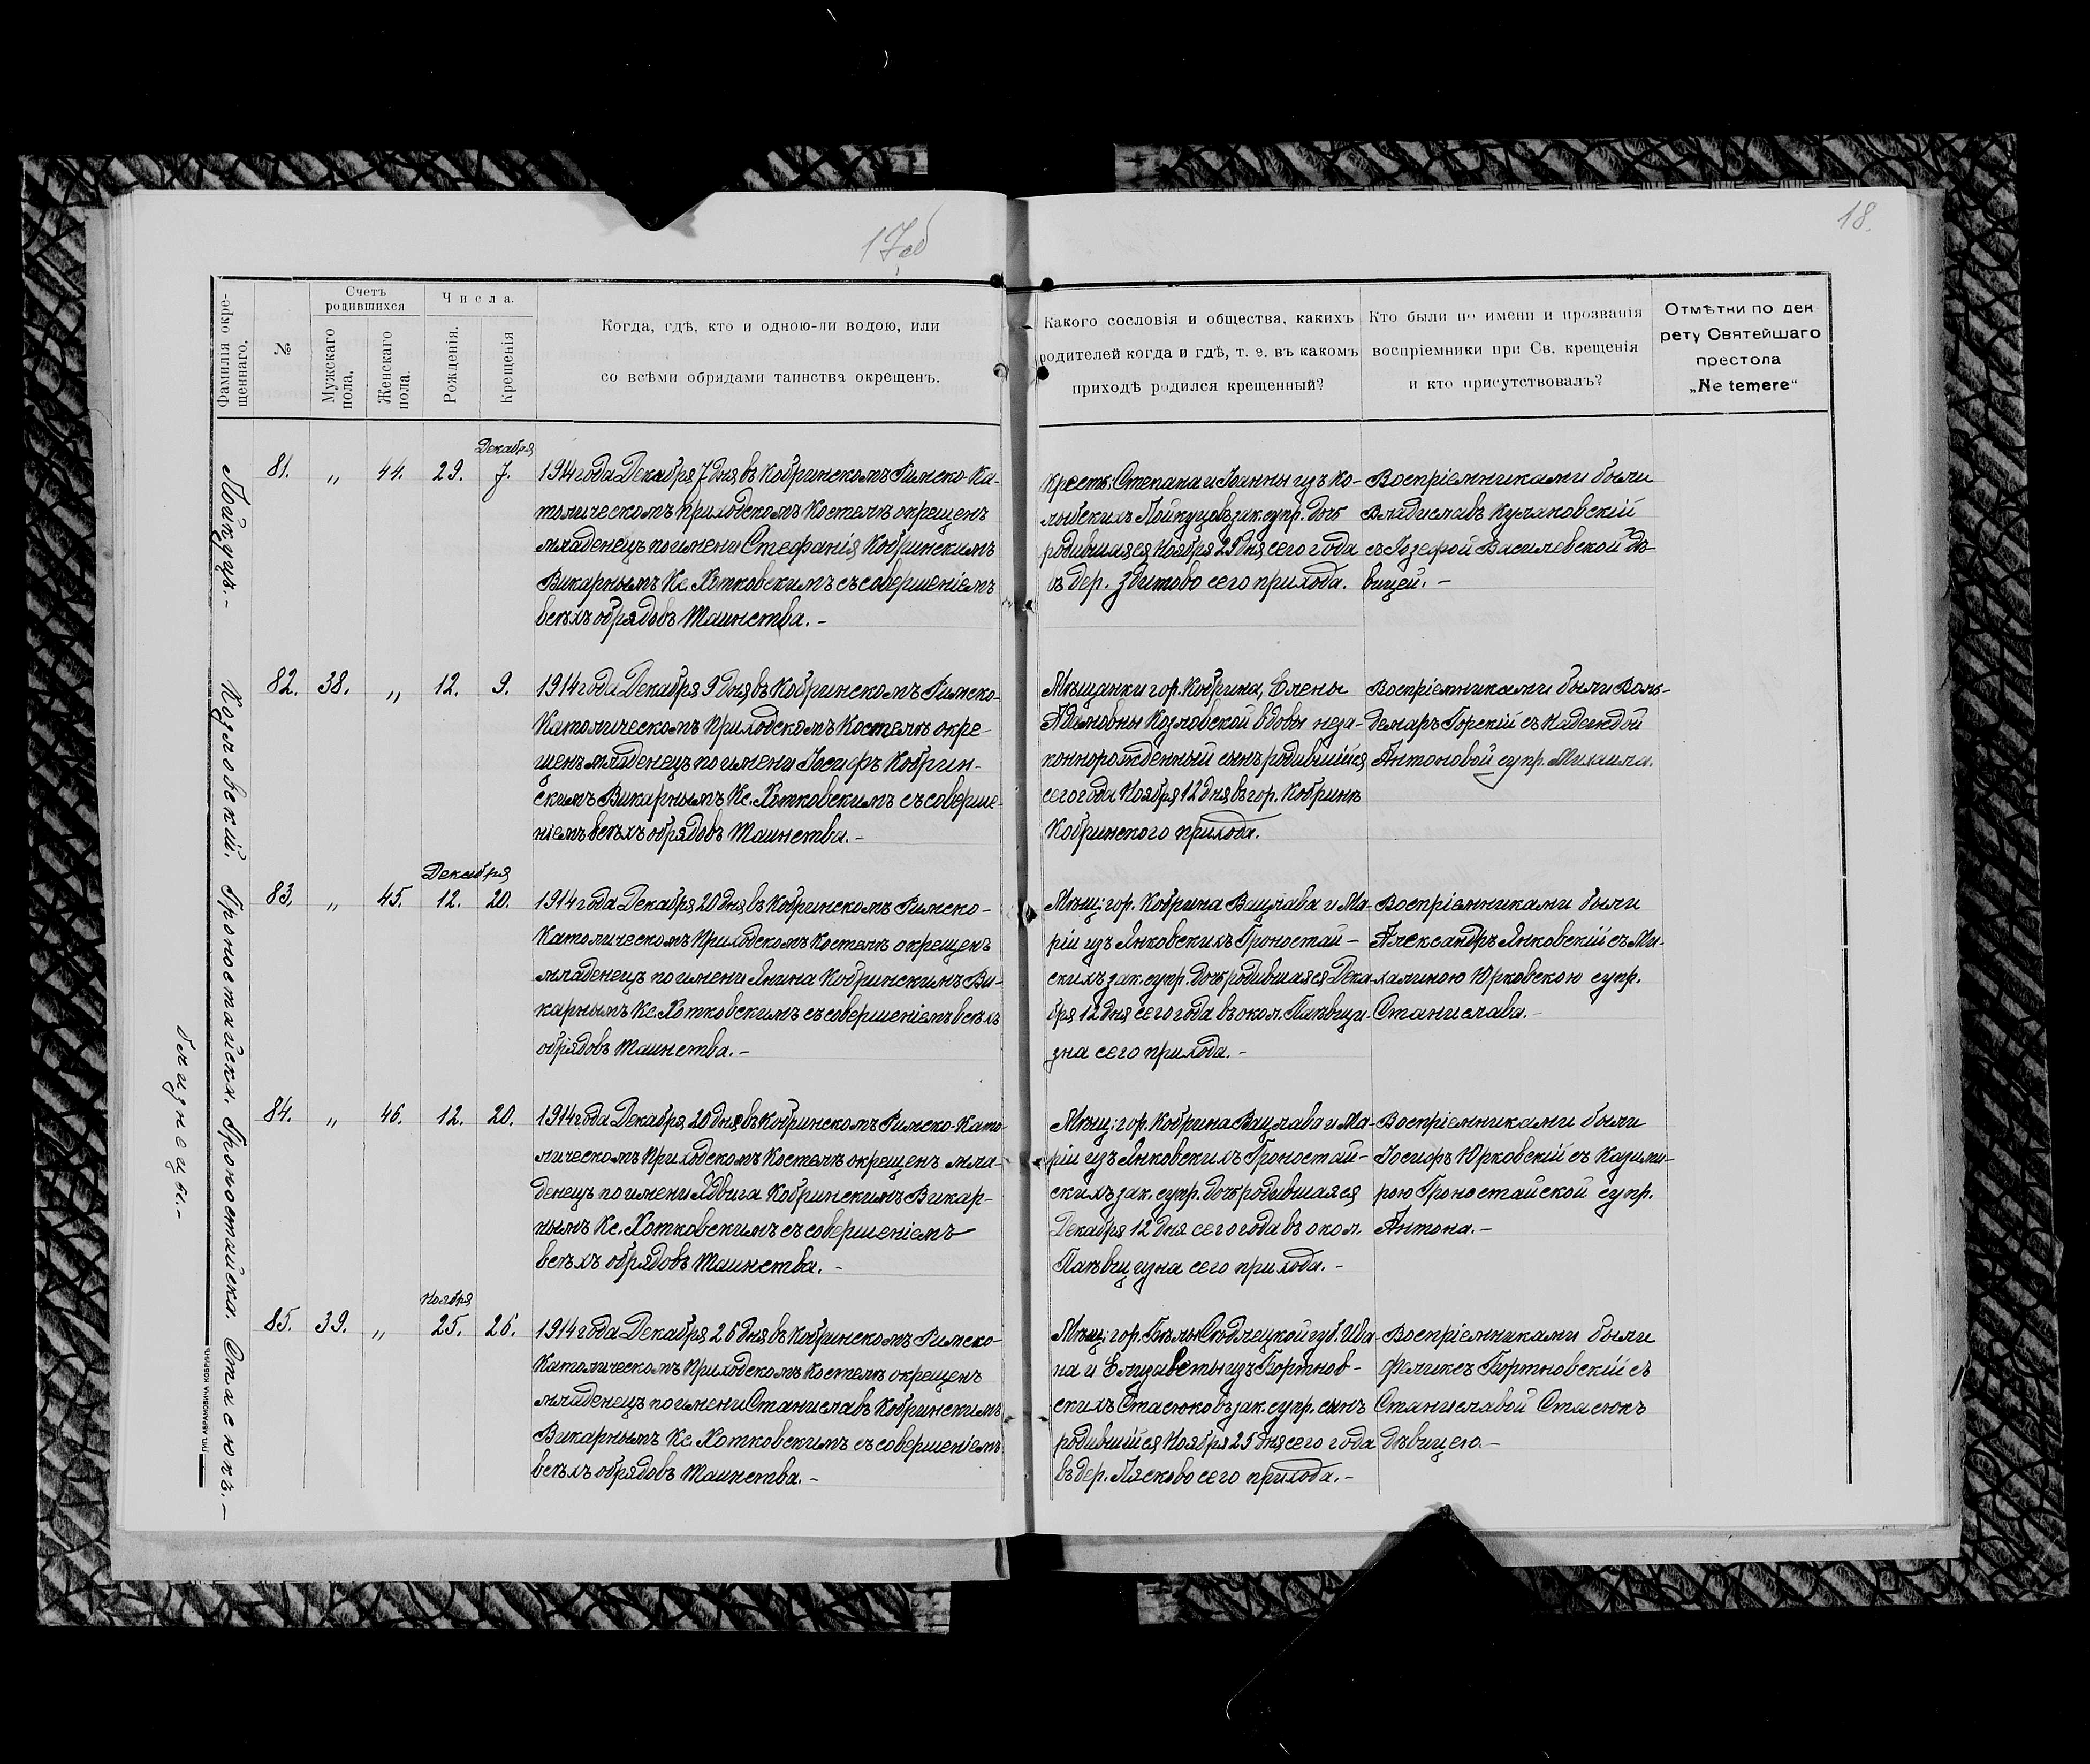 17об
18.
Фамилія окре-
щеннаго.
№
Счетъ
родившихся
Мужескаго
пола.
Женскаго
пола.
Числа.
Рожденія.
Крещенія
Когда, гдѣ, кто и одною-ли водою, или
со всѣми обрядами таинства окрещенъ.
Какого сословія и общества, какихъ
родителей когда и гдѣ, т. е. въ какомъ
приходѣ родился крещенный?
Кто были по имени и прозванія
воспріемники при Св. крещенія
и кто присутствовалъ?
Отмѣтки по дек
рету Святейшаго
престола
„Ne temere“
Пойкуцъ.-
81.
„
44.
29.
Декабря
7.
1914 года Декабря 7 дня въ Кобринскомъ Римско-Ка-
толическомъ Приходскомъ Костелѣ окрещенъ
младенецъ по имени Стефанія Кобринскимъ
Викарнымъ Кс. Хотковскимъ съ совершеніемъ
всѣхъ обрядовъ Таинства.-
Крест: Степана и Іоанны изъ Ко-
лыбскихъ Пойкуцовъ зак. супр. дочь
родившаяся Ноября 29 дня сего года
въ дер. Збитово сего прихода.
Воспріемниками были
Владиславъ Кулаковскій
съ Іозефой Василевской дѣ-
вицей.-
Козловскій.
82.
38.
„
12.
9.
1914 года Декабря 9 дня въ Кобринскомъ Римско-
Католическомъ Приходскомъ Костелѣ окре-
щенъ младенецъ по имени Іосифъ Кобрин-
скимъ Викарнымъ Кс. Хотковскимъ съ соверше-
ніемъ всѣхъ обрядовъ Таинства.-
Мѣщанки гор. Кобрина, Елены
Адамовны Козловской вдовы неза-
коннорожденный сынъ родившійся
сего года Ноября 12 дня въ гор. Кобринѣ
Кобринского прихода.
Воспріемниками были Воль-
демаръ Горскій съ Надеждой
Антоновой супр. Михаила.
Гроностайска.
83.
„
45.
Декабря
12.
20.
1914 года Декабря 20 дня въ Кобринскомъ Римско-
Католическомъ Приходскомъ Костелѣ окрещенъ
младенецъ по имени Янина Кобринскимъ Ви-
карнымъ Кс. Хотковскимъ съ совершеніемъ всѣхъ
обрядовъ Таинства.-
Мѣщ: гор. Кобрина Вацлава и Ма-
ріи изъ Янковскихъ Гроностай-
скихъ зак. супр. дочь родившаяся Дека-
бря 12 дня сего года въ окол.
зна сего прихода.-
Воспріемниками были
Александръ Янковскій съ Ми-
халиною Юрковскою супр.
Станислава.-
Гроностайска.
близнецы.-
84.
„
46.
12.
20.
1914 года Декабря 20 дня въ Кобринскомъ Римско-Като-
лическомъ Приходскомъ Костелѣ окрещенъ мла-
денецъ по имени Ядвига Кобринскимъ Викар-
нымъ Кс. Хотковскимъ съ совершеніемъ
всѣхъ обрядовъ Таинства.-
Мѣщ: гор. Кобрина Вацлава и Ма-
ріи изъ Янковскихъ Гроностай-
скихъ зак. супр. дочь родившаяся
Декабря 12 дня сего года въ окол.
сего прихода.-
Воспріемниками были
Іосифъ Юрковскій съ Казими-
рою Гроностайской супр.
Антона.-
Стасюкъ.-
85.
39.
„
Ноября
25.
26.
1914 года Декабря 26 дня въ Кобринскомъ Римско-
Католическомъ Приходскомъ Костелѣ окрещенъ
младенецъ по имени Станиславъ Кобринскимъ
Викарнымъ Кс. Хотковскимъ съ совершеніемъ
всѣхъ обрядовъ Таинства.-
Мѣщ: гор. Бѣлы Сѣдлецкой губ. Ива-
на и Елизаветы изъ Бортнов-
скихъ Стасюковъ зак. супр. сынъ
родившійся Ноября 25 дня сего года
въ дер. Пясково сего прихода.-
Воспріемниками были
Феликсъ Бортновскій съ
Станиславой Стасюкъ
дѣвицею.-
ТИП. АБРАМОВИЧА КОБРИНЪ